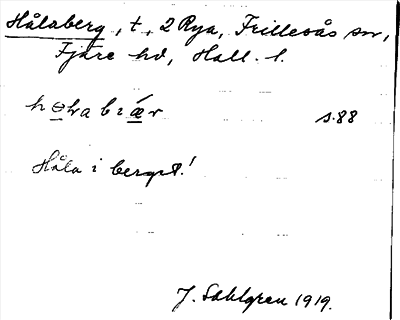 Hålaberg, t. 2 Rya, Frillesås sn,
Fjäre hd, Hall. l.
s. 88
Håla i berget!
J. Sahlgren 1919.